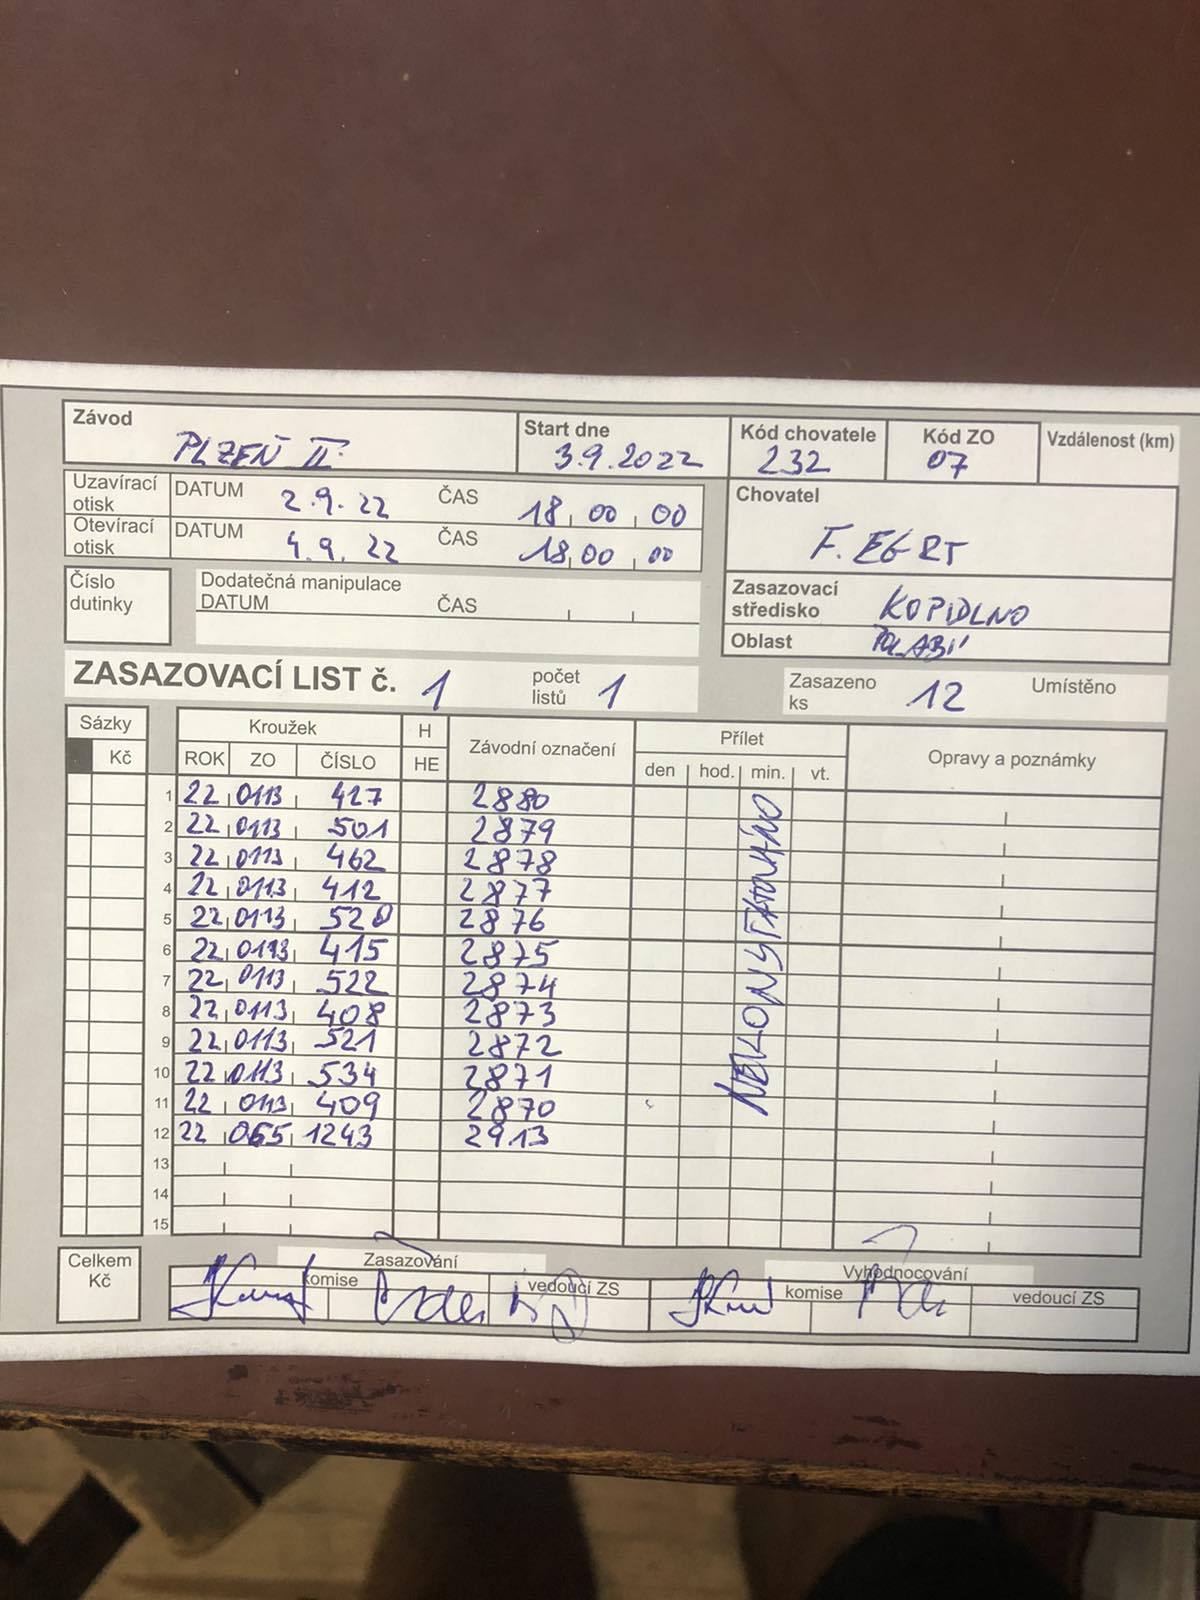 Závod PLZEŇ II. Start dne 3.9.2022 Kód chovatele 232 Kód ZO 07 Vzdálenost (km)
Uzavírací otisk DATUM 2.9.22 ČAS 18 00 00
Otevírací otisk DATUM 4.9.22 ČAS 18 00 00
Chovatel F. EGRT
Číslo dutinky
Dodatečná manipulace
DATUM ČAS
Zasazovací středisko KOPIDLNO
Oblast POLABÍ
ZASAZOVACÍ LIST č. 1 počet listů 1 Zasazeno ks 12 Umístěno
Sázky Kroužek H Závodní označení Přílet Opravy a poznámky
Kč ROK ZO ČÍSLO HE den hod. min. vt.
1 22 0113 427 2880
2 22 0113 501 2879
3 22 0113 462 2878
4 22 0113 412 2877
5 22 0113 520 2876
6 22 0113 415 2875
7 22 0113 522 2874
8 22 0113 408 2873
9 22 0113 521 2872
10 22 0113 534 2871
11 22 0113 409 2870
12 22 065 1243 2913
13
14
15
NEKONSTATOVÁNO
Celkem Kč
Zasazování Vyhodnocování
komise vedoucí ZS komise vedoucí ZS